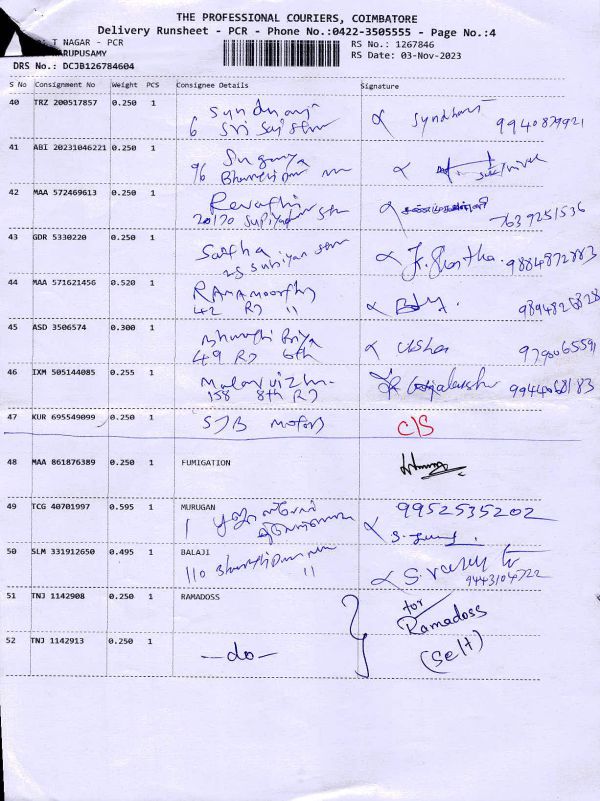 THE PROFESSIONAL COURIERS, COIMBATORE
Delivery Runsheet - PCR - Phone No.:0422-3505555 - Page No.:4
T NAGAR - PCR
KARUPUSAMY
RS No.: 1267846
RS Date: 03-Nov-2023
DRS No.: DCJB126784604
S No Consignment No Weight PCS Consignee Details Signature
40 TRZ 200517857 0.250 1
6 Sri Sai
9940879921
41 ABI 20231046221 0.250 1 Suganya
96
42 MAA 572469613 0.250 1 Revathi
20/20
7639251536
43 GDR 5330220 0.250 1 Santha
25
K. Santha. 9884872883
44 MAA 571621456 0.520 1 Ramamoorthy
42 RJ 11
9894826828
45 ASD 3506574 0.300 1 Bharathi Priya
49 RJ 6th
Usha
46 IXM 505144085 0.255 1
158 8th RJ
9944068183
47 KUR 695549099 0.250 1 SJB Motors C/S
48 MAA 861876389 0.250 1 FUMIGATION
49 TCG 40701997 0.595 1 MURUGAN 9952535202
50 SLM 331912650 0.495 1 BALAJI
110
11
9443104722
51 TNJ 1142908 0.250 1 RAMADOSS
for
Ramadoss
(Self)
52 TNJ 1142913 0.250 1 —do—